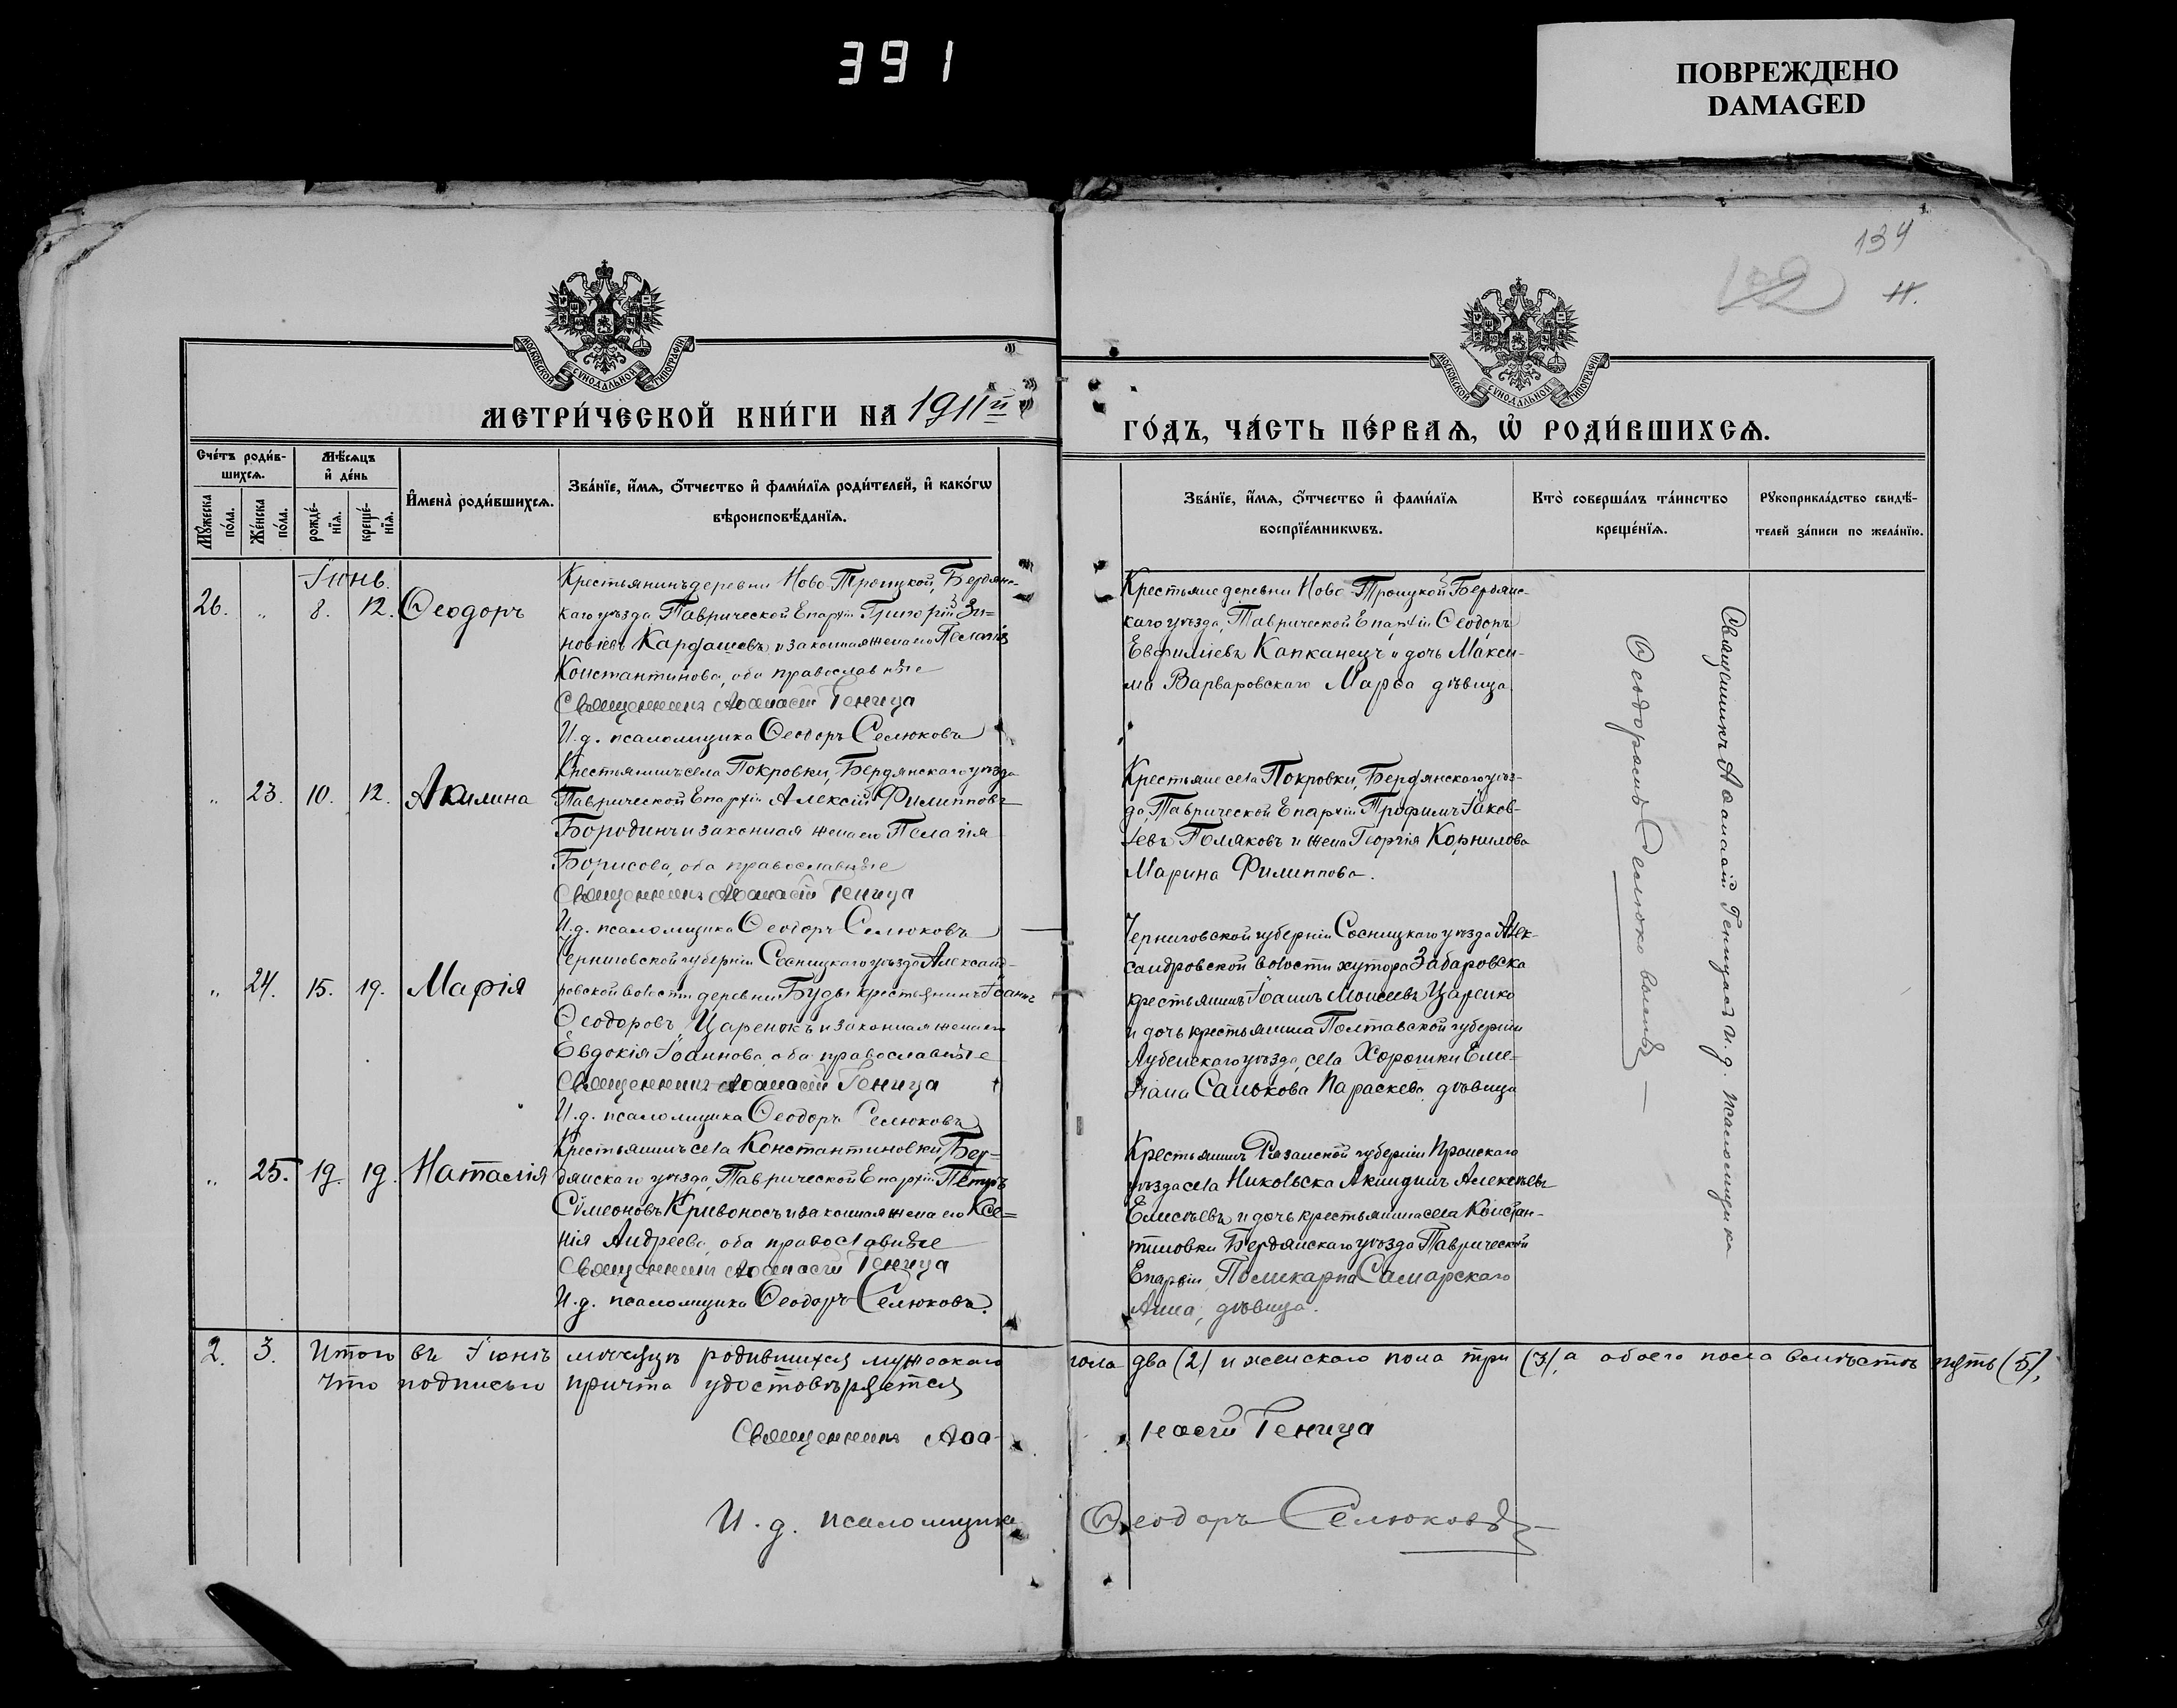 391
ПОВРЕЖДЕНО
DAMAGED
134
122
11.
МОСКОВСКОЙ СУНОДАЛЬНОЙ ТИПОГРАФІИ
МОСКОВСКОЙ СУНОДАЛЬНОЙ ТИПОГРАФІИ
МЕТРИ́ЧЕСКОЙ КНИ́ГИ НА 1911й
ГО́ДЪ, ЧА́СТЬ ПЕ́РВАѦ, Ѡ҆ РОДИ́ВШИХСѦ.
Сче́тъ роди́в-
шихсѧ.
Мꙋ́жеска
по́ла.
Же́нска
по́ла.
Мѣ́сѧцъ
и҆ де́нь
рожде́-
нїѧ.
креще́-
нїѧ.
И҆мена̀ роди́вшихсѧ.
Зва́нїе, и҆́мѧ, ѻ҆́тчество и҆ фами́лїѧ роди́телей, и҆ како́гѡ
вѣроисповѣ́данїѧ.
Зва́нїе, и҆́мѧ, ѻ҆́тчество и҆ фами́лїѧ
воспрїе́мникѡвъ.
Кто̀ соверша́лъ та́инство
креще́нїѧ.
Рꙋкоприкла́дство свидѣ́-
телей за́писи по жела́нїю.
Іюнь.
26. „ 8. 12. Ѳеодоръ
Крестьянинъ деревни Ново-Троицкой, Бердянс-
каго уѣзда, Таврической Епархіи Григорій Зи-
новіевъ Кардашевъ и законная жена его Пелагія
Константинова, оба православные
Священникъ Аѳанасій Геница
И.д. псаломщика Ѳеодоръ Селюковъ
Крестьяне деревни Ново-Троицкой Бердянс-
каго уѣзда, Таврической Епархіи Ѳеодоръ
Евфиміевъ Капканецъ и дочь Макси-
ма Варваровскаго Марѳа дѣвица.
„ 23. 10. 12. Акилина
Крестьянинъ села Покровки, Бердянскаго уѣзда
Таврической Епархіи Алексій Филипповъ
Бородинъ и законная жена его Пелагія
Борисова, оба православные
Священникъ Аѳанасій Геница
И.д. псаломщика Ѳеодоръ Селюковъ
Крестьяне села Покровки, Бердянскаго уѣз-
да, Таврической Епархіи Трофимъ Іаков-
левъ Поляковъ и жена Георгія Корнилова
Марина Филиппова.
„ 24. 15. 19. Марія
Черниговской губерніи Сосницкаго уѣзда Александ-
ровской волости деревни Буды крестьянинъ Іоаннъ
Ѳеодоровъ Царенокъ и законная жена его
Евдокія Іоаннова, оба православные
Священникъ Аѳанасій Геница
И.д. псаломщика Ѳеодоръ Селюковъ
Черниговской губерніи Сосницкаго уѣзда Алек-
сандровской волости хутора Забаровска
крестьянинъ Іоаннъ Моисеевъ Царенко
и дочь крестьянина Полтавской губерніи
Лубенскаго уѣзда, села Хорошки Еме-
ліана Санькова Параскева, дѣвица
„ 25. 19. 19. Наталія
Крестьянинъ села Константиновки, Бер-
дянскаго уѣзда, Таврической Епархіи Петръ
Сѵмеоновъ Кривоносъ и законная жена его Ксе-
нія Андреева, оба православные
Священникъ Аѳанасій Геница
И.д. псаломщика Ѳеодоръ Селюковъ.
Крестьянинъ Рязанской губерніи Пронскаго
уѣзда села Никольска Акиндинъ Алексѣевъ
Елисѣевъ и дочь крестьянина села Констан-
тиновки Бердянскаго уѣзда Таврической
Епархіи, Поликарпа Самарскаго
Анна, дѣвица.
Священникъ Аѳанасій Геница съ И.д. псаломщика
Ѳеодоромъ Селюковымъ
2. 3. Итого въ Іюнѣ мѣсяцѣ родившихся мужескаго пола два (2) и женскаго пола три (3), а обоего пола вмѣстѣ пять (5),
что подписью причта удостовѣряется
Священникъ Аѳанасій Геница
И.д. псаломщика Ѳеодоръ Селюковъ